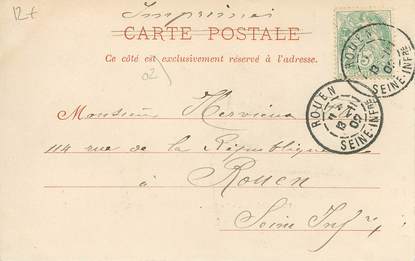 Imprimés
CARTE POSTALE
Ce côté est exclusivement réservé à l'adresse.
02
Monsieur Hervieux
114 rue de la République
à Rouen
Seine Infre
ROUEN
SEINE-INFRE
ROUEN
13
02
SEINE-INFRE